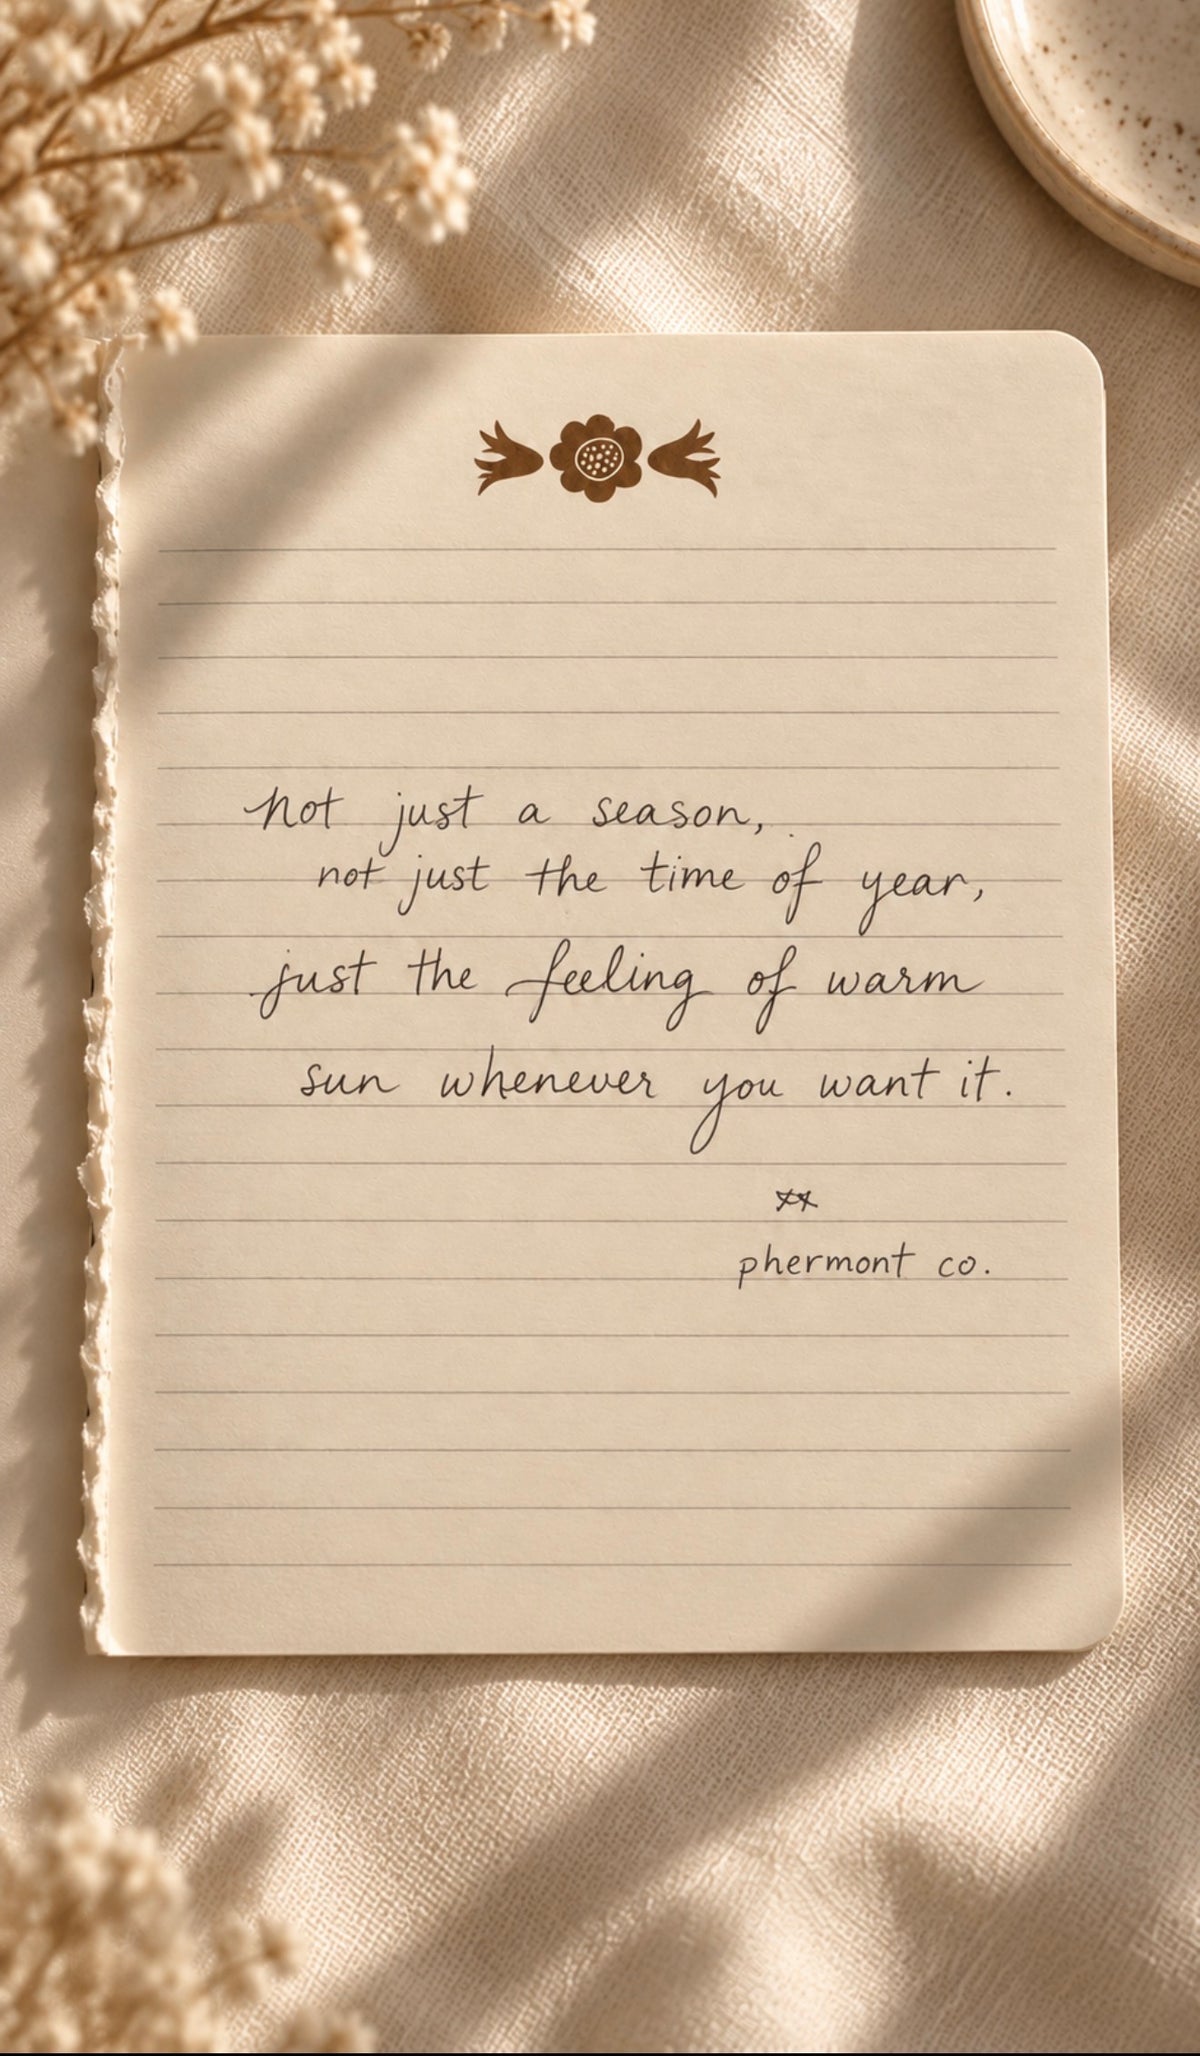 not just a season,
not just the time of year,
just the feeling of warm
sun whenever you want it.
xx
phermont co.